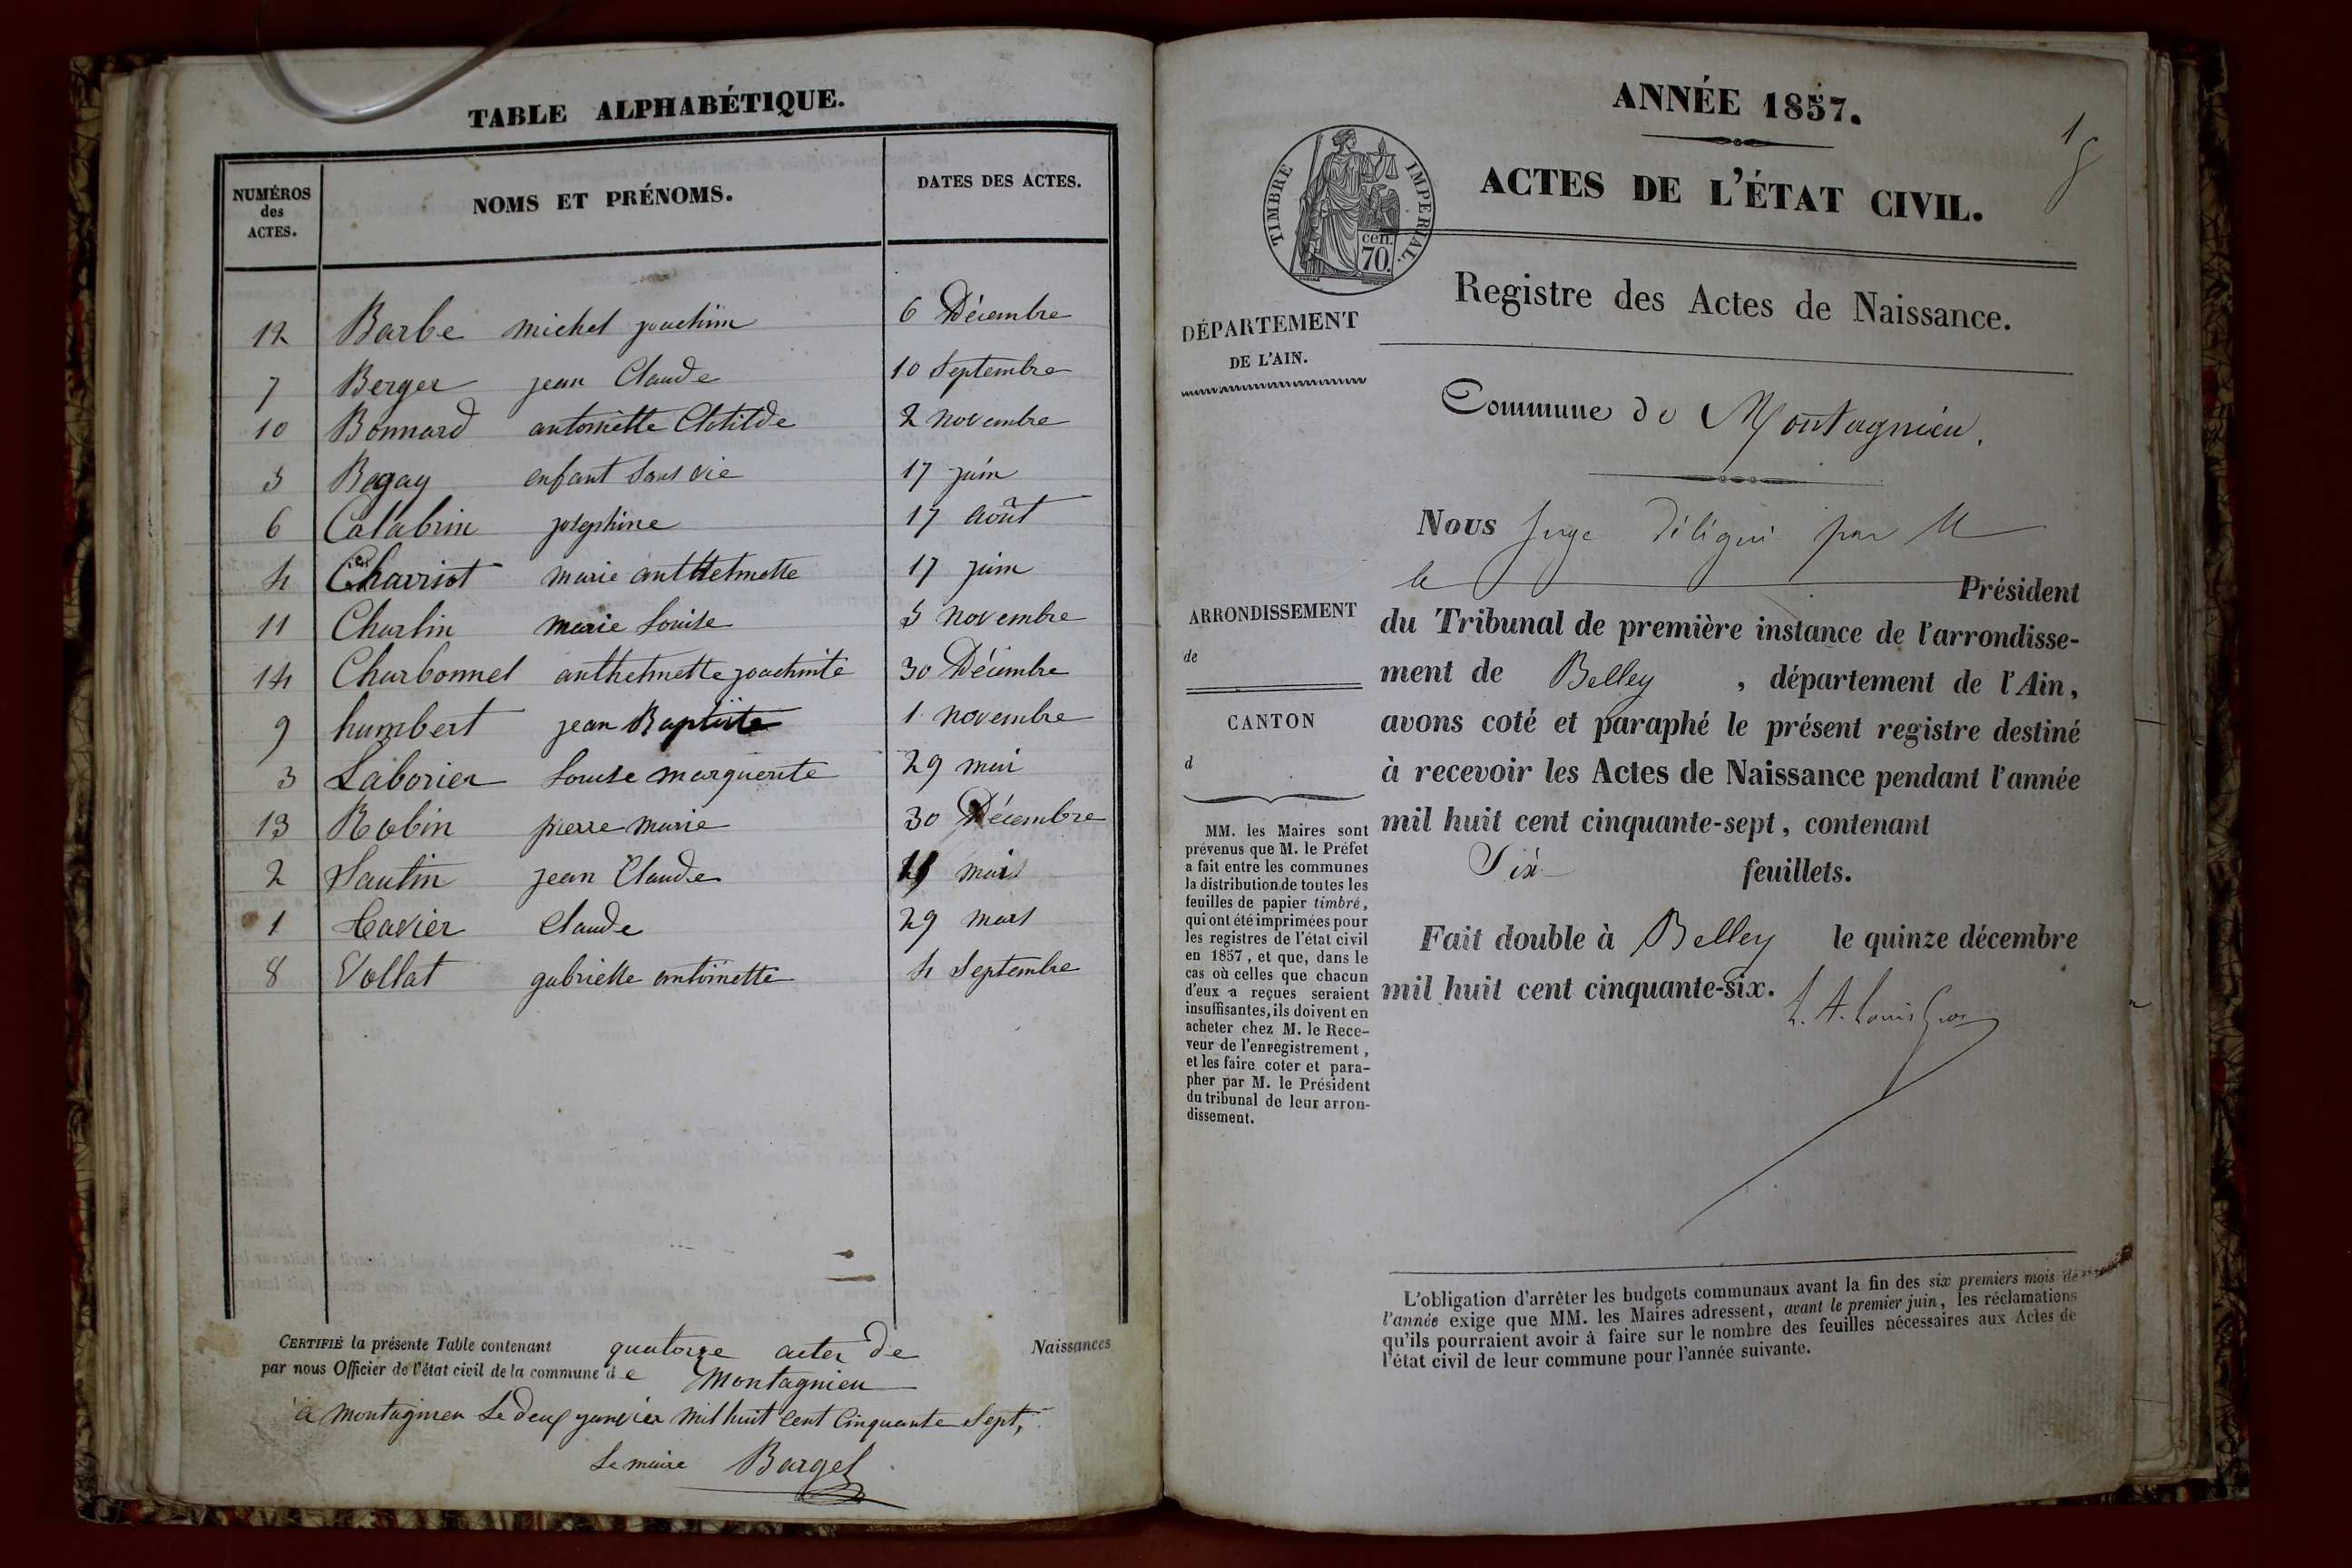 TABLE ALPHABÉTIQUE.
NUMÉROS
des
ACTES.
NOMS ET PRÉNOMS.
DATES DES ACTES.
12 Barbe michel joachim 6 Décembre
7 Berger jean Claude 10 Septembre
10 Bonnard antoinette Clotilde 2 novembre
5 Begay enfant Sans vie 17 juin
6 Calabrin josephine 17 août
4 Charriot marie anthelmette 17 juin
11 Charlin marie Louise 5 novembre
14 Charbonnel anthelmette joachinite 30 Décembre
9 humbert jean Baptiste 1 novembre
3 Laborier Louise marguerite 29 mai
13 Robin pierre marie 30 Décembre
2 Sautin jean Claude mai
1 Xavier Claude 29 mars
8 Vollat gabrielle antoinette 4 Septembre
CERTIFIÉ la présente Table contenant quatorze actes de Naissances
par nous Officier de l'état civil de la commune de Montagnieu
à Montagnieu Le deux janvier mil huit Cent Cinquante Sept,
Le maire Barget
ANNÉE 1857.
1
TIMBRE IMPERIAL.
cen.
70.
ACTES DE L'ÉTAT CIVIL.
Registre des Actes de Naissance.
DÉPARTEMENT
DE L'AIN.
Commune de Montagnieu.
Nous Juge Délégué par M
le Président
du Tribunal de première instance de l'arrondisse-
ment de Belley , département de l'Ain,
avons coté et paraphé le présent registre destiné
à recevoir les Actes de Naissance pendant l'année
mil huit cent cinquante-sept, contenant
Six feuillets.
Fait double à Belley le quinze décembre
mil huit cent cinquante-six.
ARRONDISSEMENT
de
CANTON
d
MM. les Maires sont
prévenus que M. le Préfet
a fait entre les communes
la distribution de toutes les
feuilles de papier timbré,
qui ont été imprimées pour
les registres de l'état civil
en 1857, et que, dans le
cas où celles que chacun
d'eux a reçues seraient
insuffisantes, ils doivent en
acheter chez M. le Rece-
veur de l'enregistrement,
et les faire coter et para-
pher par M. le Président
du tribunal de leur arron-
dissement.
L'obligation d'arrêter les budgets communaux avant la fin des six premiers mois de
l'année exige que MM. les Maires adressent, avant le premier juin, les réclamations
qu'ils pourraient avoir à faire sur le nombre des feuilles nécessaires aux Actes de
l'état civil de leur commune pour l'année suivante.